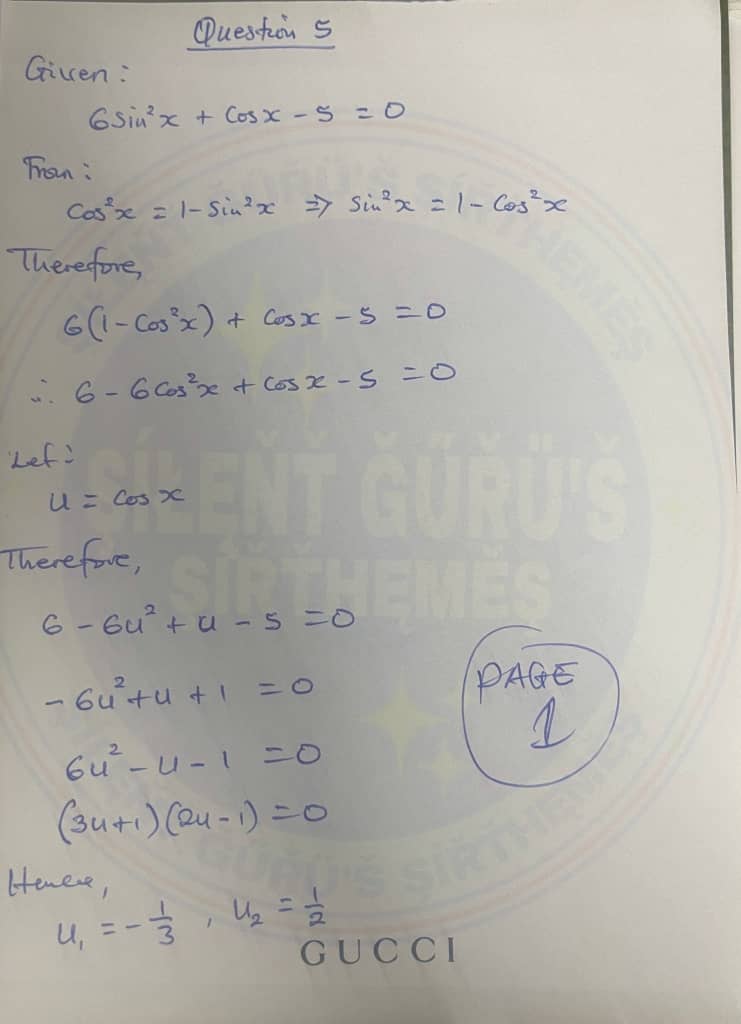 Question 5
Given:
6Sin²x + Cosx - 5 = 0
From:
Cos²x = 1 - Sin²x ⇒ Sin²x = 1 - Cos²x
Therefore,
6(1 - Cos²x) + Cosx - 5 = 0
∴ 6 - 6Cos²x + Cosx - 5 = 0
Let:
u = Cos x
Therefore,
6 - 6u² + u - 5 = 0
- 6u² + u + 1 = 0
6u² - u - 1 = 0
(3u+1)(2u-1) = 0
PAGE
1
Hence,
u₁ = -1/3 , u₂ = 1/2
GUCCI
SÍLEŇŤ ĞŰŘÜ'Š
SÍŘŤHEMĚS